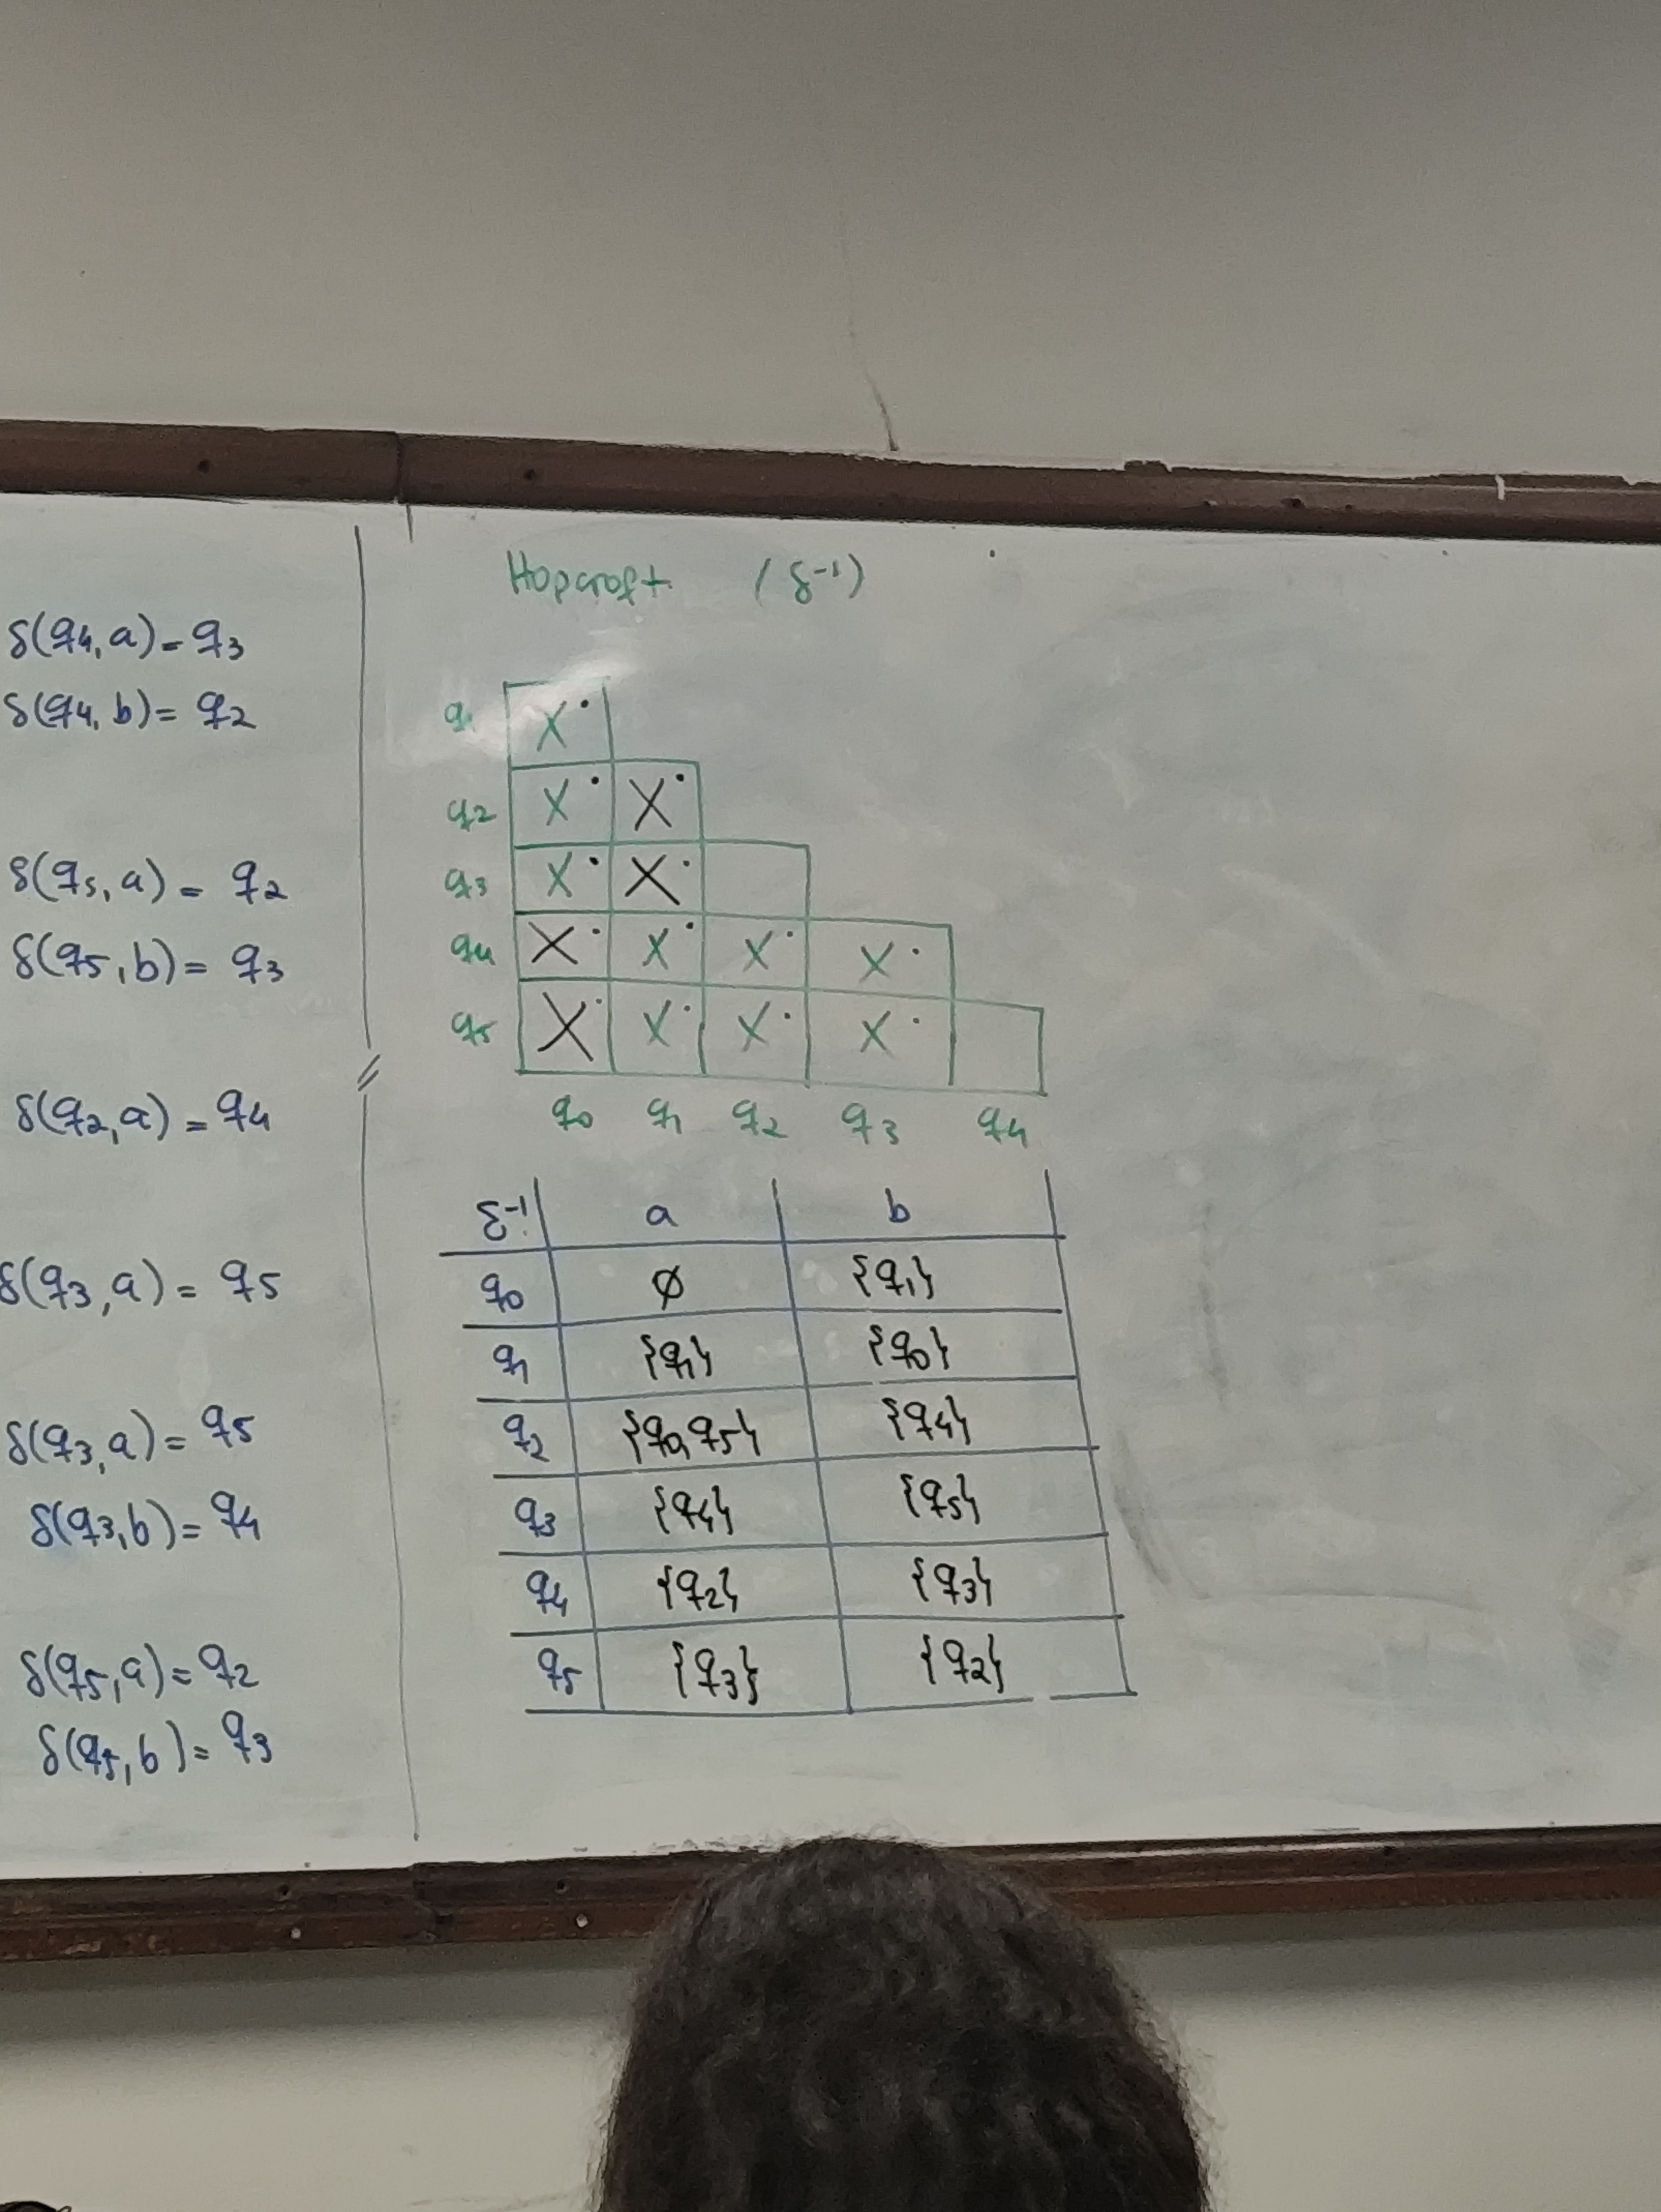 δ(q4, a) = q3
δ(q4, b) = q2
δ(q5, a) = q2
δ(q5, b) = q3
δ(q2, a) = q4
δ(q3, a) = q5
δ(q3, a) = q5
δ(q3, b) = q4
δ(q5, a) = q2
δ(q5, b) = q3
Hopcroft (δ⁻¹)
q1 X
q2 X X
q3 X X
q4 X X X X
q5 X X X X
q0 q1 q2 q3 q4
δ⁻¹ a b
q0 ∅ {q1}
q1 {q1} {q0}
q2 {q0, q5} {q4}
q3 {q4} {q5}
q4 {q2} {q3}
q5 {q3} {q2}